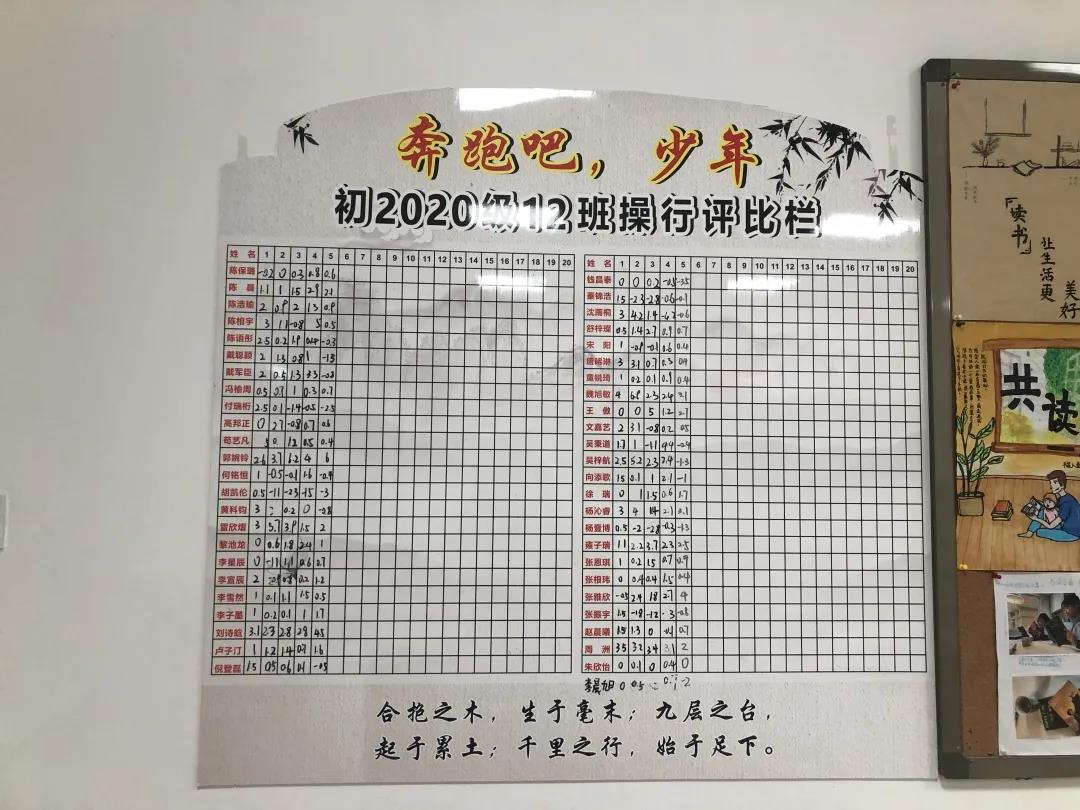 奔跑吧，少年
初2020级12班操行评比栏
姓 名 1 2 3 4 5 6 7 8 9 10 11 12 13 14 15 16 17 18 19 20
陈保璐 -0.2 0 0.3 0.8 0.6
陈 晨 1.1 1 1.5 2.9 2.1
陈浩瑜 2 0.9 2 1.3 0.9
陈相宇 3 1.1 -0.8 5 0.5
陈语彤 2.5 0.2 1.9 0.4 -0.3
戴聪颖 2 1.3 0.8 1 -1.3
戴军臣 2 0.5 1.3 3.3 -0.8
冯榆周 0.5 0.7 1 0.3 0.7
付瑞桁 2.5 0.1 -1.4 -0.5 -2.5
高邦正 0 2.7 -0.8 0.7 0.6
苟艺凡 1.2 0.5 0.4
郭婉铃 2.6 3.7 6.2 4 6
何铭恒 1 -0.5 -0.1 1.6 -0.4
胡凯伦 0.5 -1.1 -2.3 -1.5 -3
黄科钧 3 0.2 0 -0.8
雷欣熠 3 5.7 3.9 1.5 2
黎池龙 0 0.6 1.8 2.4 1
李星辰 0 -1.1 1.1 0.6 0.7
李宣辰 2 0.2 1.2
李雪然 1 0.1 1.1 1.5 0.5
李子墨 1 0.2 0.1 1 1.7
刘诗晗 3.1 2.3 2.8 2.8 4.5
卢子汀 1 1.2 1.4 0.7 1.6
倪登磊 1.5 0.5 0.6 0.1 -0.5
姓 名 1 2 3 4 5 6 7 8 9 10 11 12 13 14 15 16 17 18 19 20
钱昌泰 0 0 0.2 -0.5 -3.5
秦锦浩 1.5 -2.3 -2.8 -0.6 -0.1
沈雨桐 3 4.2 1.4 -4.2 -0.6
舒梓璨 0.5 1.4 2.7 0.9 0.7
宋 阳 1 -0.9 -0.1 0.6 0.4
唐晞琳 3 3.1 0.7 0.3 0.4
童锐琦 1 0.2 0.1 0.9 0.4
魏旭敏 4 6.9 2.3 2.4 2.1
王 傲 0 0 5 1.2 2.7
文嘉艺 2 3.1 -0.8 0.2 0.5
吴秉道 1.7 1 -1.1 4.4 -0.4
吴梓航 2.5 5.2 2.3 2.4 -1.3
向添歌 1.5 0.1 1 2.1 -1
徐 瑞 0 1 1.5 0.6 1.7
杨沁睿 3 4 1.4 2.1 0.1
杨壹博 0.5 -2 -2.8 -0.3 -1.3
雍子瑞 1.1 2.2 3.7 2.3 2.5
张恩琪 1 0.2 1.5 0.7 0.9
张根玮 0 0.4 0.4 1.5 0.4
张雅欣 -0.5 2.4 1.8 2.7 4
张振宇 1.5 -1.8 -1.2 -3 -0.8
赵晨曦 1.5 1.3 0 0.7
周 洲 3.5 3.2 3.4 3.1 2
朱欣怡 0 0.1 0 0.4 0
李晨旭 0 0.5
合抱之木，生于毫末；九层之台，
起于累土；千里之行，始于足下。
「读书」
让生活更
美好
共读